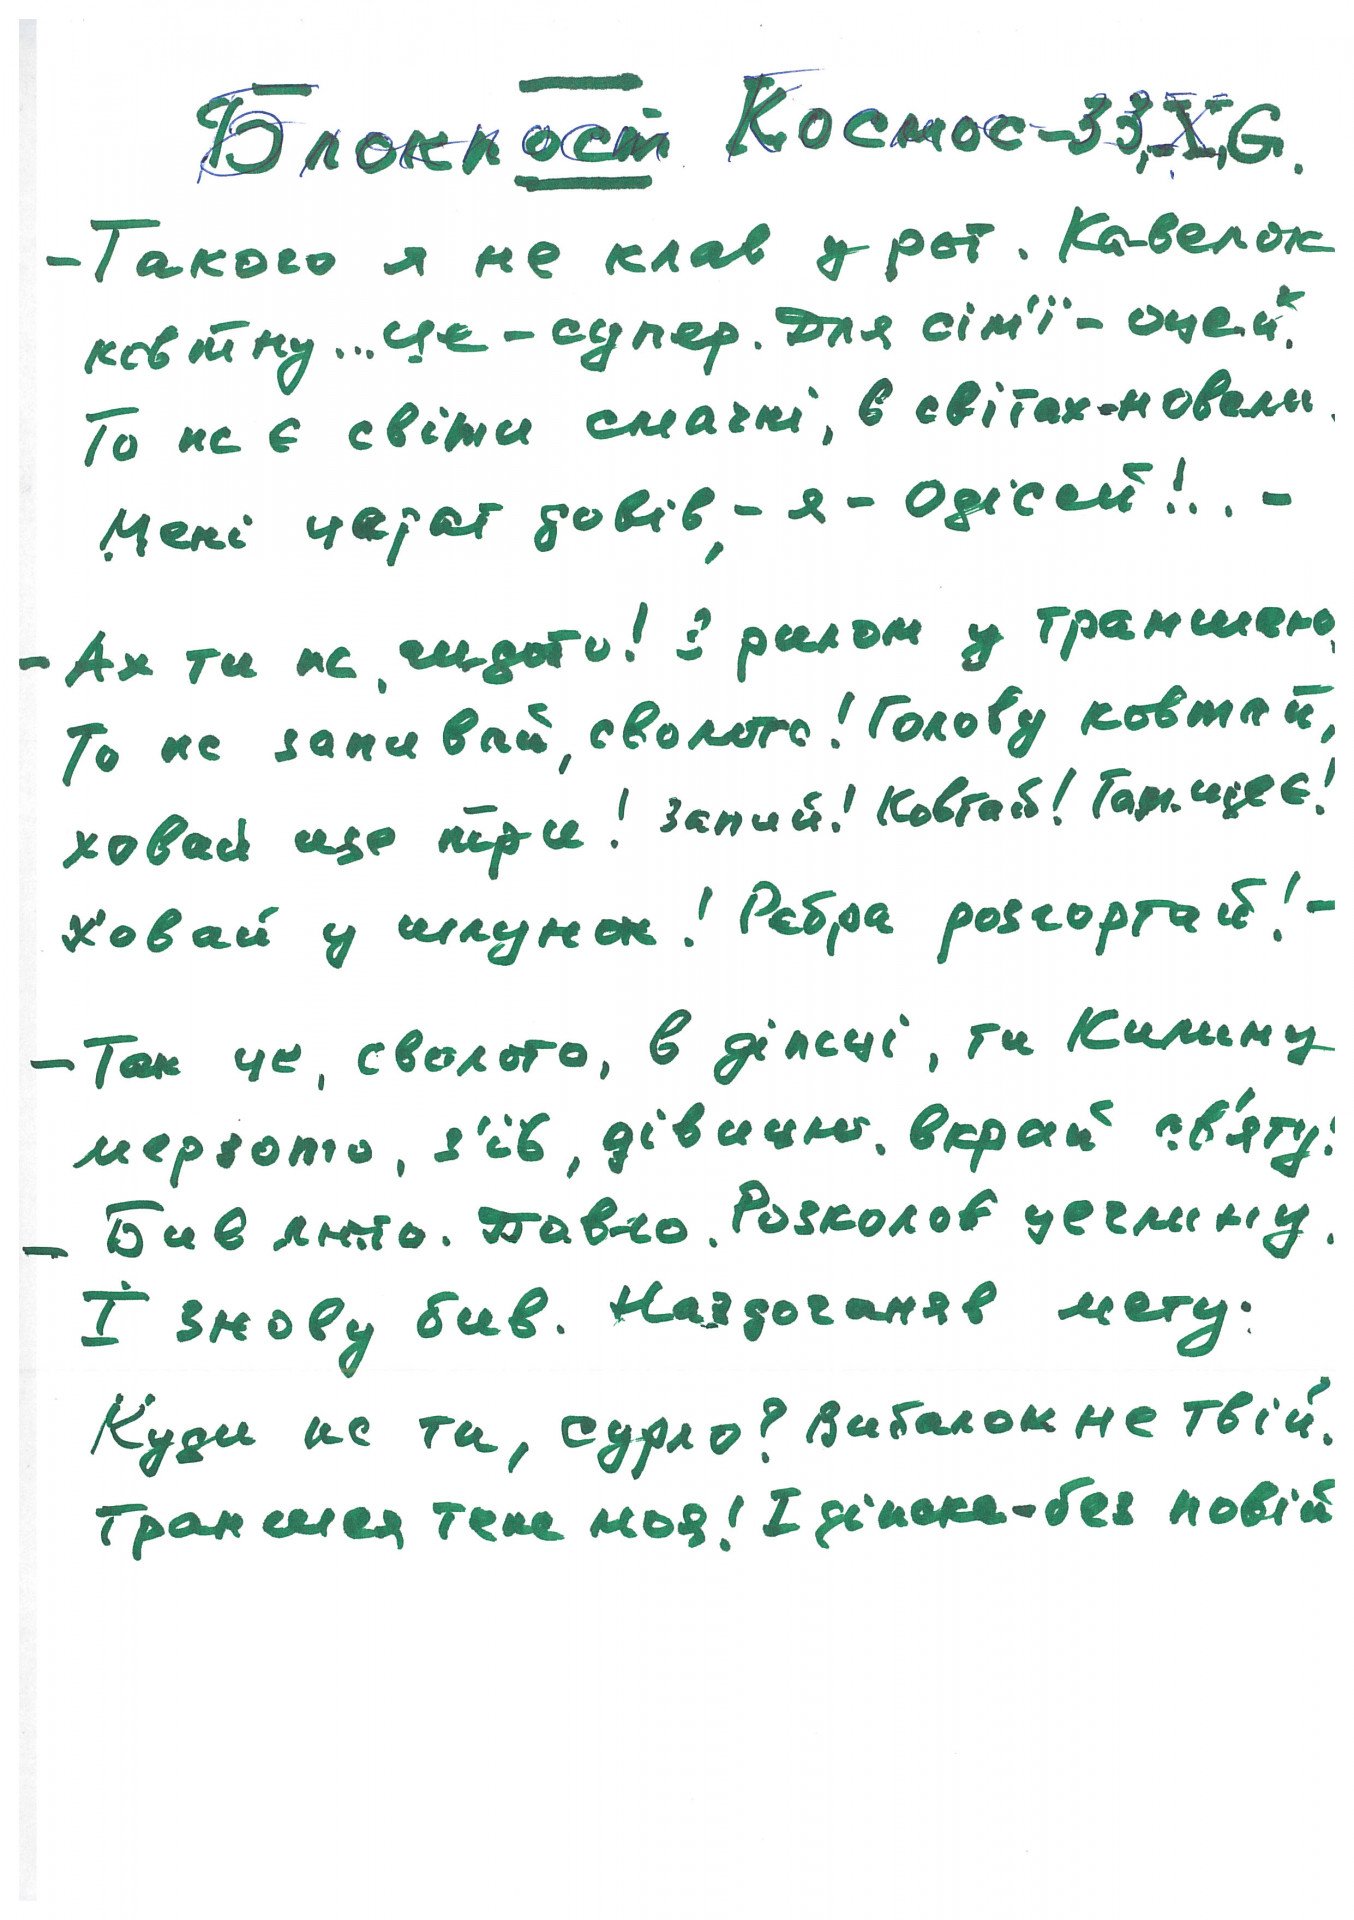 Блокпост Космос-33,X,G.
- Такого я не клав у рот. Кавелок
ковтну... Це - супер. Для сім'ї - оцей.
То же є світи смачні, в світах - новели.
Мені чарат довів, - я - Одісей!.. -
- Ах ти ж, гидото! З рилом у траншею,
То же запивай, сволото! Голову ковтай,
ховай ще три! Запий! Ковтай! Там ще є!
Ховай у шлунок! Ребра розгортай! -
- Так це, сволото, в діжці, ти Килину
мерзото, з'їв, дівицю, вкрай св'яту!
- Бив люто. Павло. Розколов щелину.
І знову бив. Наздоганяв мету:
Куди же ти, сурло? Вибалок не твій.
Траншея теж моя! І діжка - без повій